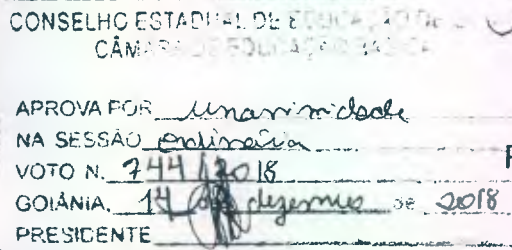 CONSELHO ESTADUAL DE EDUCAÇÃO DE
CÂMARA DE EDUCAÇÃO BÁSICA
APROVA POR unanimidade
NA SESSÃO ordinária
VOTO N. 744/2018
GOIÂNIA, 14 de dezembro de 2018
PRESIDENTE